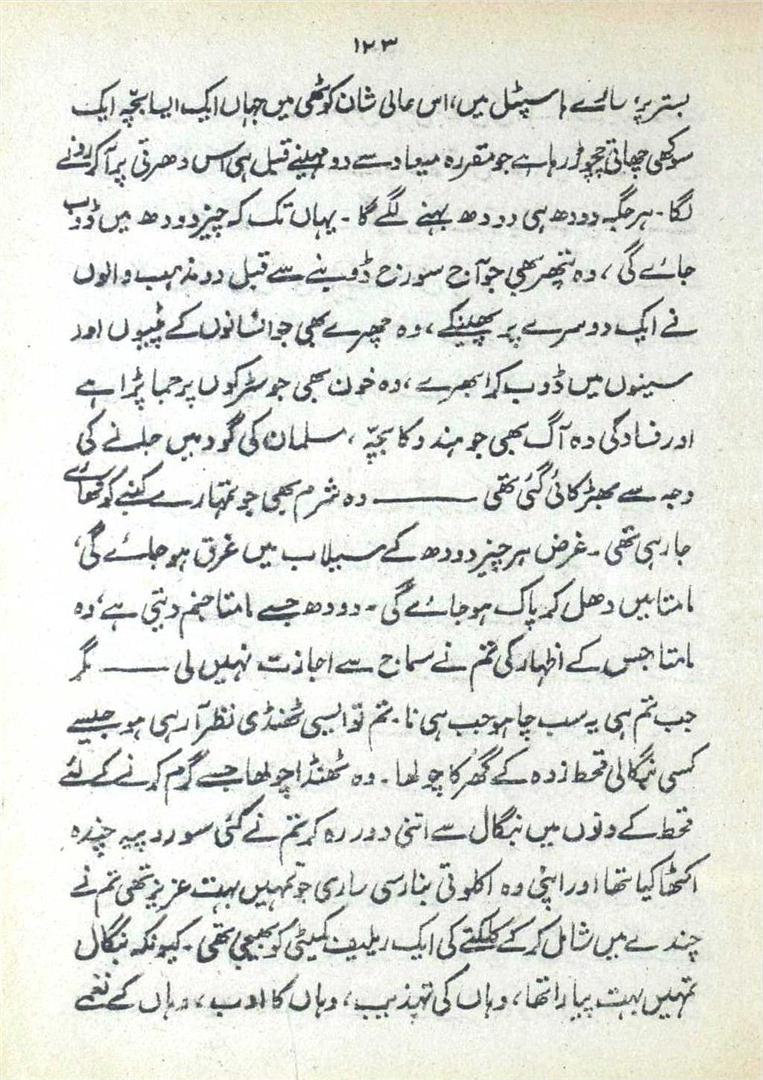 ۱۲۳
بستر پر، سارے ہاسپٹل میں، اس عالی شان کوٹھی میں جہاں ایک ایسا بچّہ ایک
سوکھی چھاتی چچوڑ رہا ہے جو مقررہ میعاد سے دو مہینے قبل ہی اس دھرتی پر آ کر رونے
لگا ۔ ہر جگہ دودھ ہی دودھ بہنے لگے گا ۔ یہاں تک کہ ہر چیز دودھ میں ڈوب
جائے گی ، وہ پتھر بھی جو آج سورج ڈوبنے سے قبل دو مذہب والوں
نے ایک دوسرے پر پھینکے ، وہ چھرے بھی جو انسانوں کے پیٹوں اور
سینوں میں ڈوب کر ابھرے ، وہ خون بھی جو سڑکوں پر جما پڑا ہے
اور فساد کی وہ آگ بھی جو ہندو کا بچّہ ، مسلمان کی گود میں جلنے کی
وجہ سے بھڑکائی گئی تھی ——— وہ شرم بھی جو تمہارے کہنے کو کھائے
جا رہی تھی ۔ غرض ہر چیز دودھ کے سیلاب میں غرق ہو جائے گی ،
مامتا میں دھل کر پاک ہو جائے گی ۔ دودھ جسے مامتا جنم دیتی ہے ، وہ
مامتا جس کے اظہار کی تم نے سماج سے اجازت نہیں لی ——— مگر
جب تم ہی یہ سب چاہو جب ہی نا ۔ تم تو ایسی ٹھنڈی نظر آ رہی ہو جیسے
کسی بنگالی قحط زدہ کے گھر کا چولھا ۔ وہ ٹھنڈا چولھا جسے گرم کرنے کے لئے
قحط کے دنوں میں بنگال سے اتنی دور رہ کر تم نے کئی سو روپیہ چندہ
اکٹھا کیا تھا اور اپنی وہ اکلوتی بنارسی ساری جو تمہیں بہت عزیز تھی تم نے
چندے میں شامل کر کے کلکتے کی ایک ریلیف کمیٹی کو بھیجی تھی ۔ کیونکہ بنگال
تمہیں بہت پیارا تھا ، وہاں کی تہذیب ، وہاں کا ادب ، وہاں کے نغمے